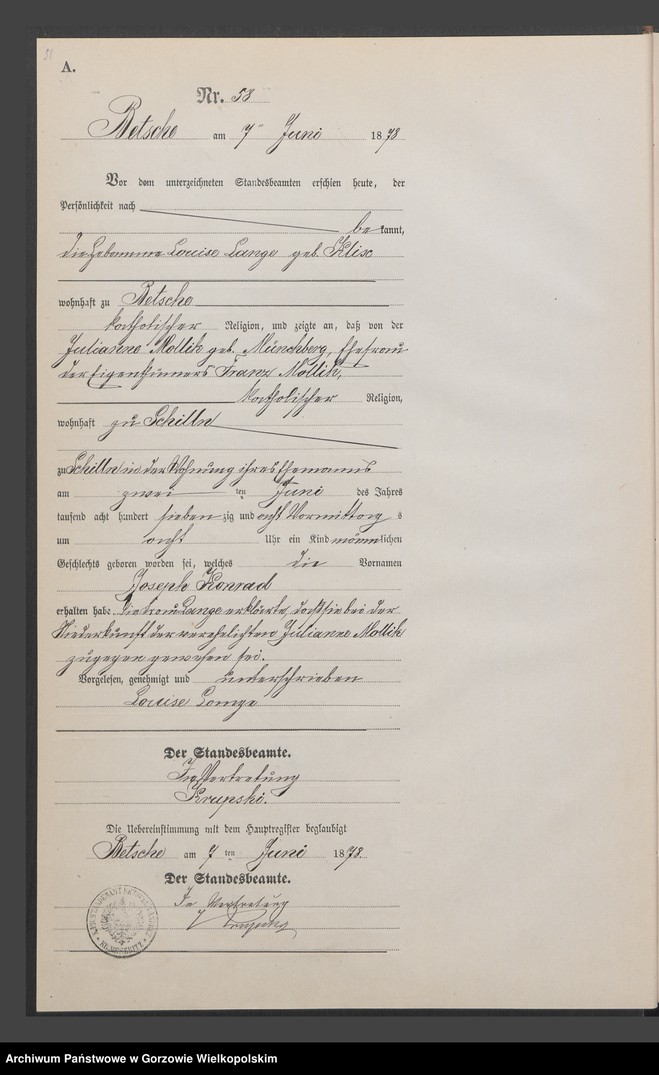 51
A.
Nr. 58
Betsche am 7ten Juni 1878
Vor dem unterzeichneten Standesbeamten erschien heute, der
Persönlichkeit nach
be kannt,
die Hebamme Louise Lange geb. Klix
wohnhaft zu Betsche
katholischer Religion, und zeigte an, daß von der
Julianne Mollik geb. Münchberg, Ehefrau
des Eigenthümers Franz Mollik,
katholischer Religion,
wohnhaft zu Schilln
zu Schilln in der Wohnung ihres Ehemanns
am zwei ten Juni des Jahres
tausend acht hundert sieben zig und acht Vormittag s
um acht Uhr ein Kind männlichen
Geschlechts geboren worden sei, welches die Vornamen
Joseph Konrad
erhalten habe. Die Frau Lange erklärte, daß sie bei der
Niederkunft der verehelichten Julianne Mollik
zugegen gewesen sei.
Vorgelesen, genehmigt und unterschrieben
Louise Lange
Der Standesbeamte.
In Vertretung
Krupski.
Die Uebereinstimmung mit dem Hauptregister beglaubigt
Betsche am 7 ten Juni 1878.
Der Standesbeamte.
In Vertretung
Archiwum Państwowe w Gorzowie Wielkopolskim